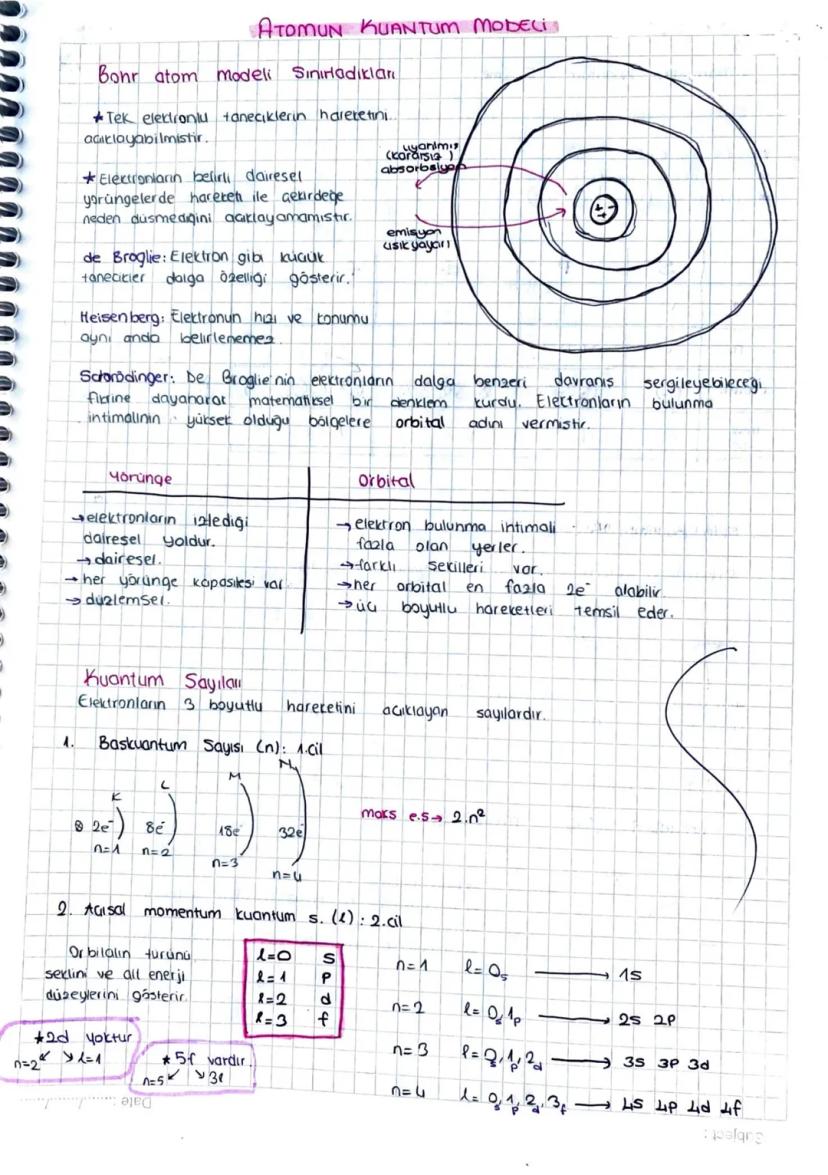 ATOMUN KUANTUM MODELİ
Bohr atom modeli Sınırladıkları
★ Tek elektronlu taneciklerin hareketini
açıklayabilmiştir.
★ Elektronların belirli dairesel
yörüngelerde hareketi ile çekirdeğe
neden düşmediğini açıklayamamıştır.
uyarılmış
(kararsız)
absorbsiyon
emisyon
(ışık yayar)
de Broglie: Elektron gibi küçük
tanecikler dalga özelliği gösterir.
Heisenberg: Elektronun hızı ve konumu
aynı anda belirlenemez.
Schrödinger: De Broglie'nin elektronların dalga benzeri davranış sergileyebileceği
fikrine dayanarak matematiksel bir denklem kurdu. Elektronların bulunma
intimalinin yüksek olduğu bölgelere orbital adını vermiştir.
Yörünge
→ elektronların izlediği
dairesel yoldur.
→ dairesel.
→ her yörünge kapasitesi var
→ düzlemsel.
Orbital
→ elektron bulunma intimali
fazla olan yerler.
→ farklı şekilleri var.
→ her orbital en fazla 2e⁻ alabilir.
→ üç boyutlu hareketleri temsil eder.
Kuantum Sayıları
Elektronların 3 boyutlu hareketini açıklayan sayılardır.
1. Başkuantum Sayısı (n): 1.cil
K L M N
2e⁻ 8e⁻ 18e⁻ 32e⁻
n=1 n=2 n=3 n=4
maks e.s → 2.n²
2. Açısal momentum kuantum s. (ℓ): 2.cil
Orbitalin türünü,
şeklini ve alt enerji
düzeylerini gösterir.
ℓ=0 s
ℓ=1 p
ℓ=2 d
ℓ=3 f
n=1 ℓ=0s → 1s
n=2 ℓ=0s,1p → 2s 2p
n=3 ℓ=0s,1p,2d → 3s 3p 3d
n=4 ℓ=0s,1p,2d,3f → 4s 4p 4d 4f
★ 2d yoktur
n=2 ℓ=1
★ 5f vardır.
n=5 3ℓ
Date: ....../....../......
Subject: